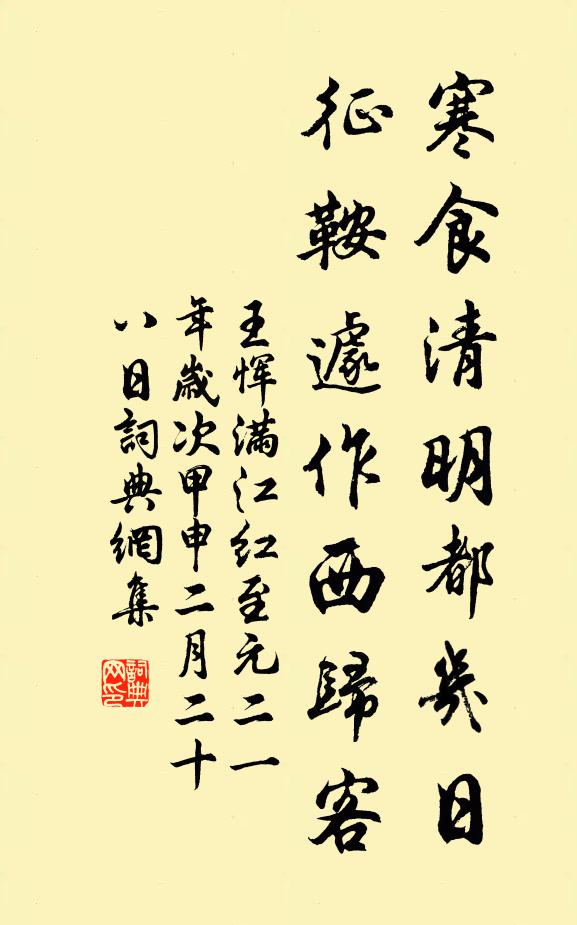 寒食清明都幾日
征鞍遽作西歸客
王惲滿江紅至元二一
年歲次甲申二月二十
八日詞典網集
詞典
网印